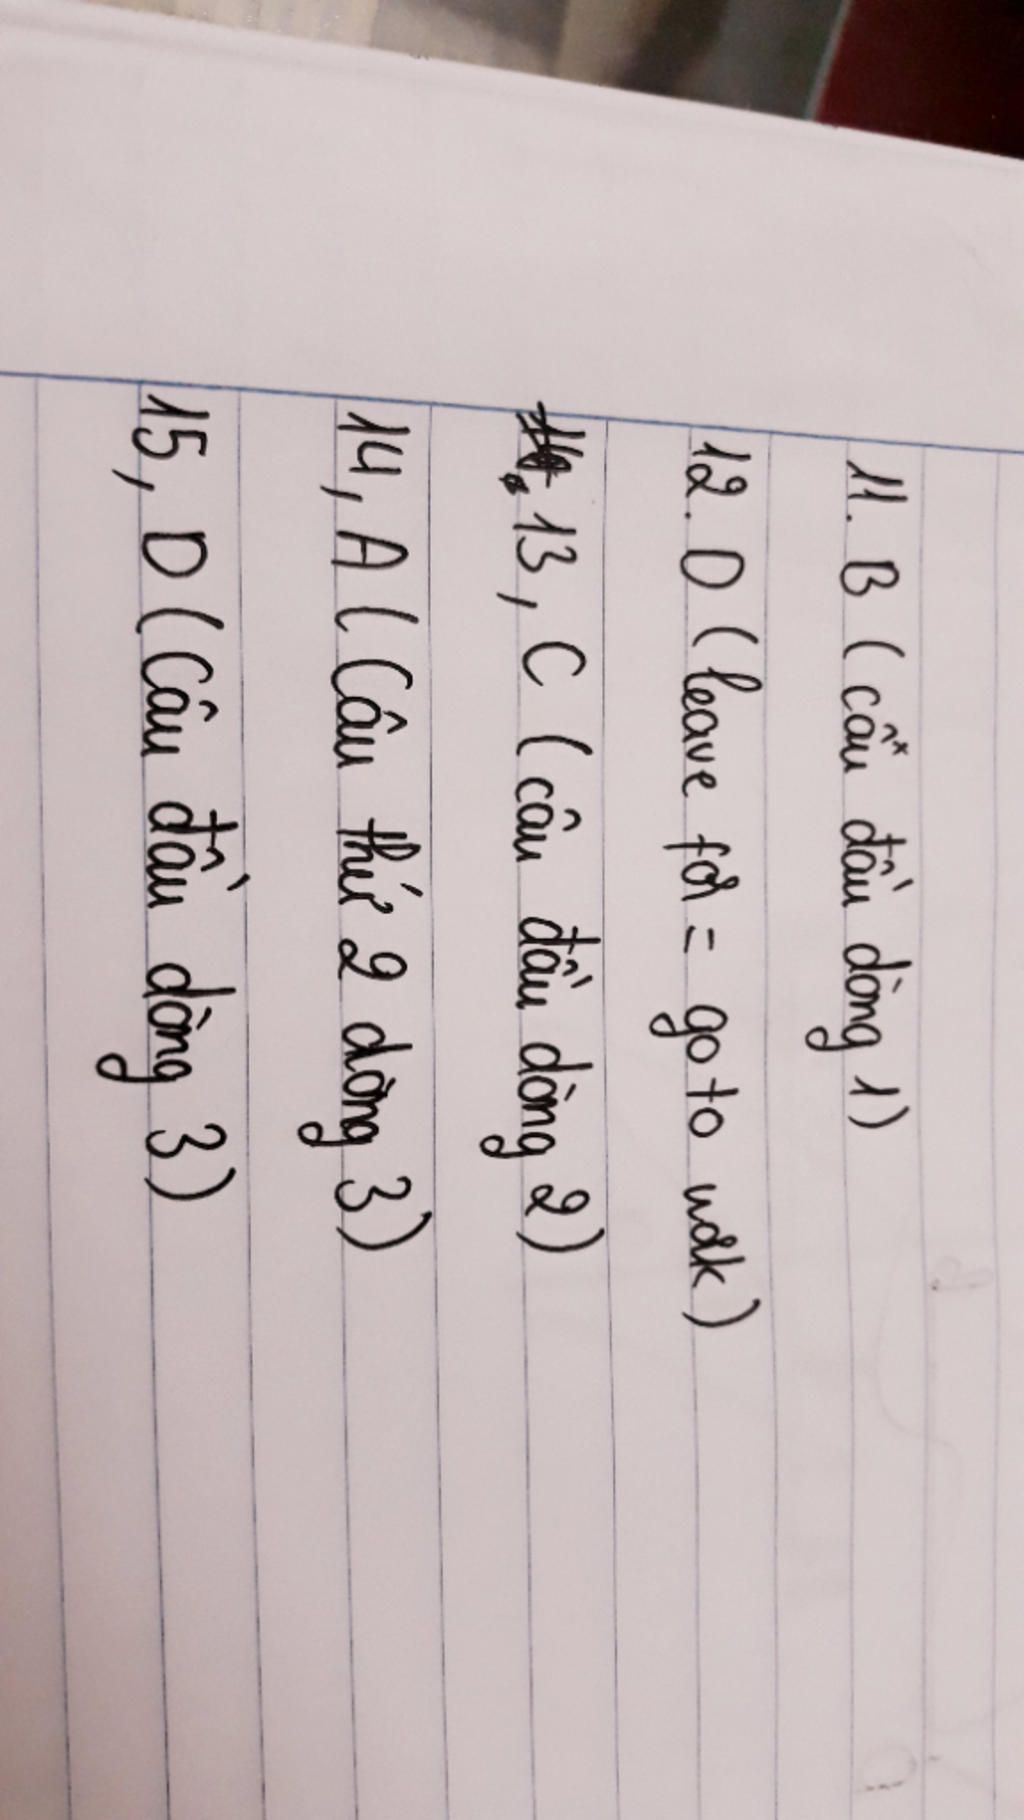 11. B (câu đầu dòng 1)
12. D (leave for = go to wok)
13, C (câu đầu dòng 2)
14, A (Câu thứ 2 dòng 3)
15, D (Câu đầu dòng 3)